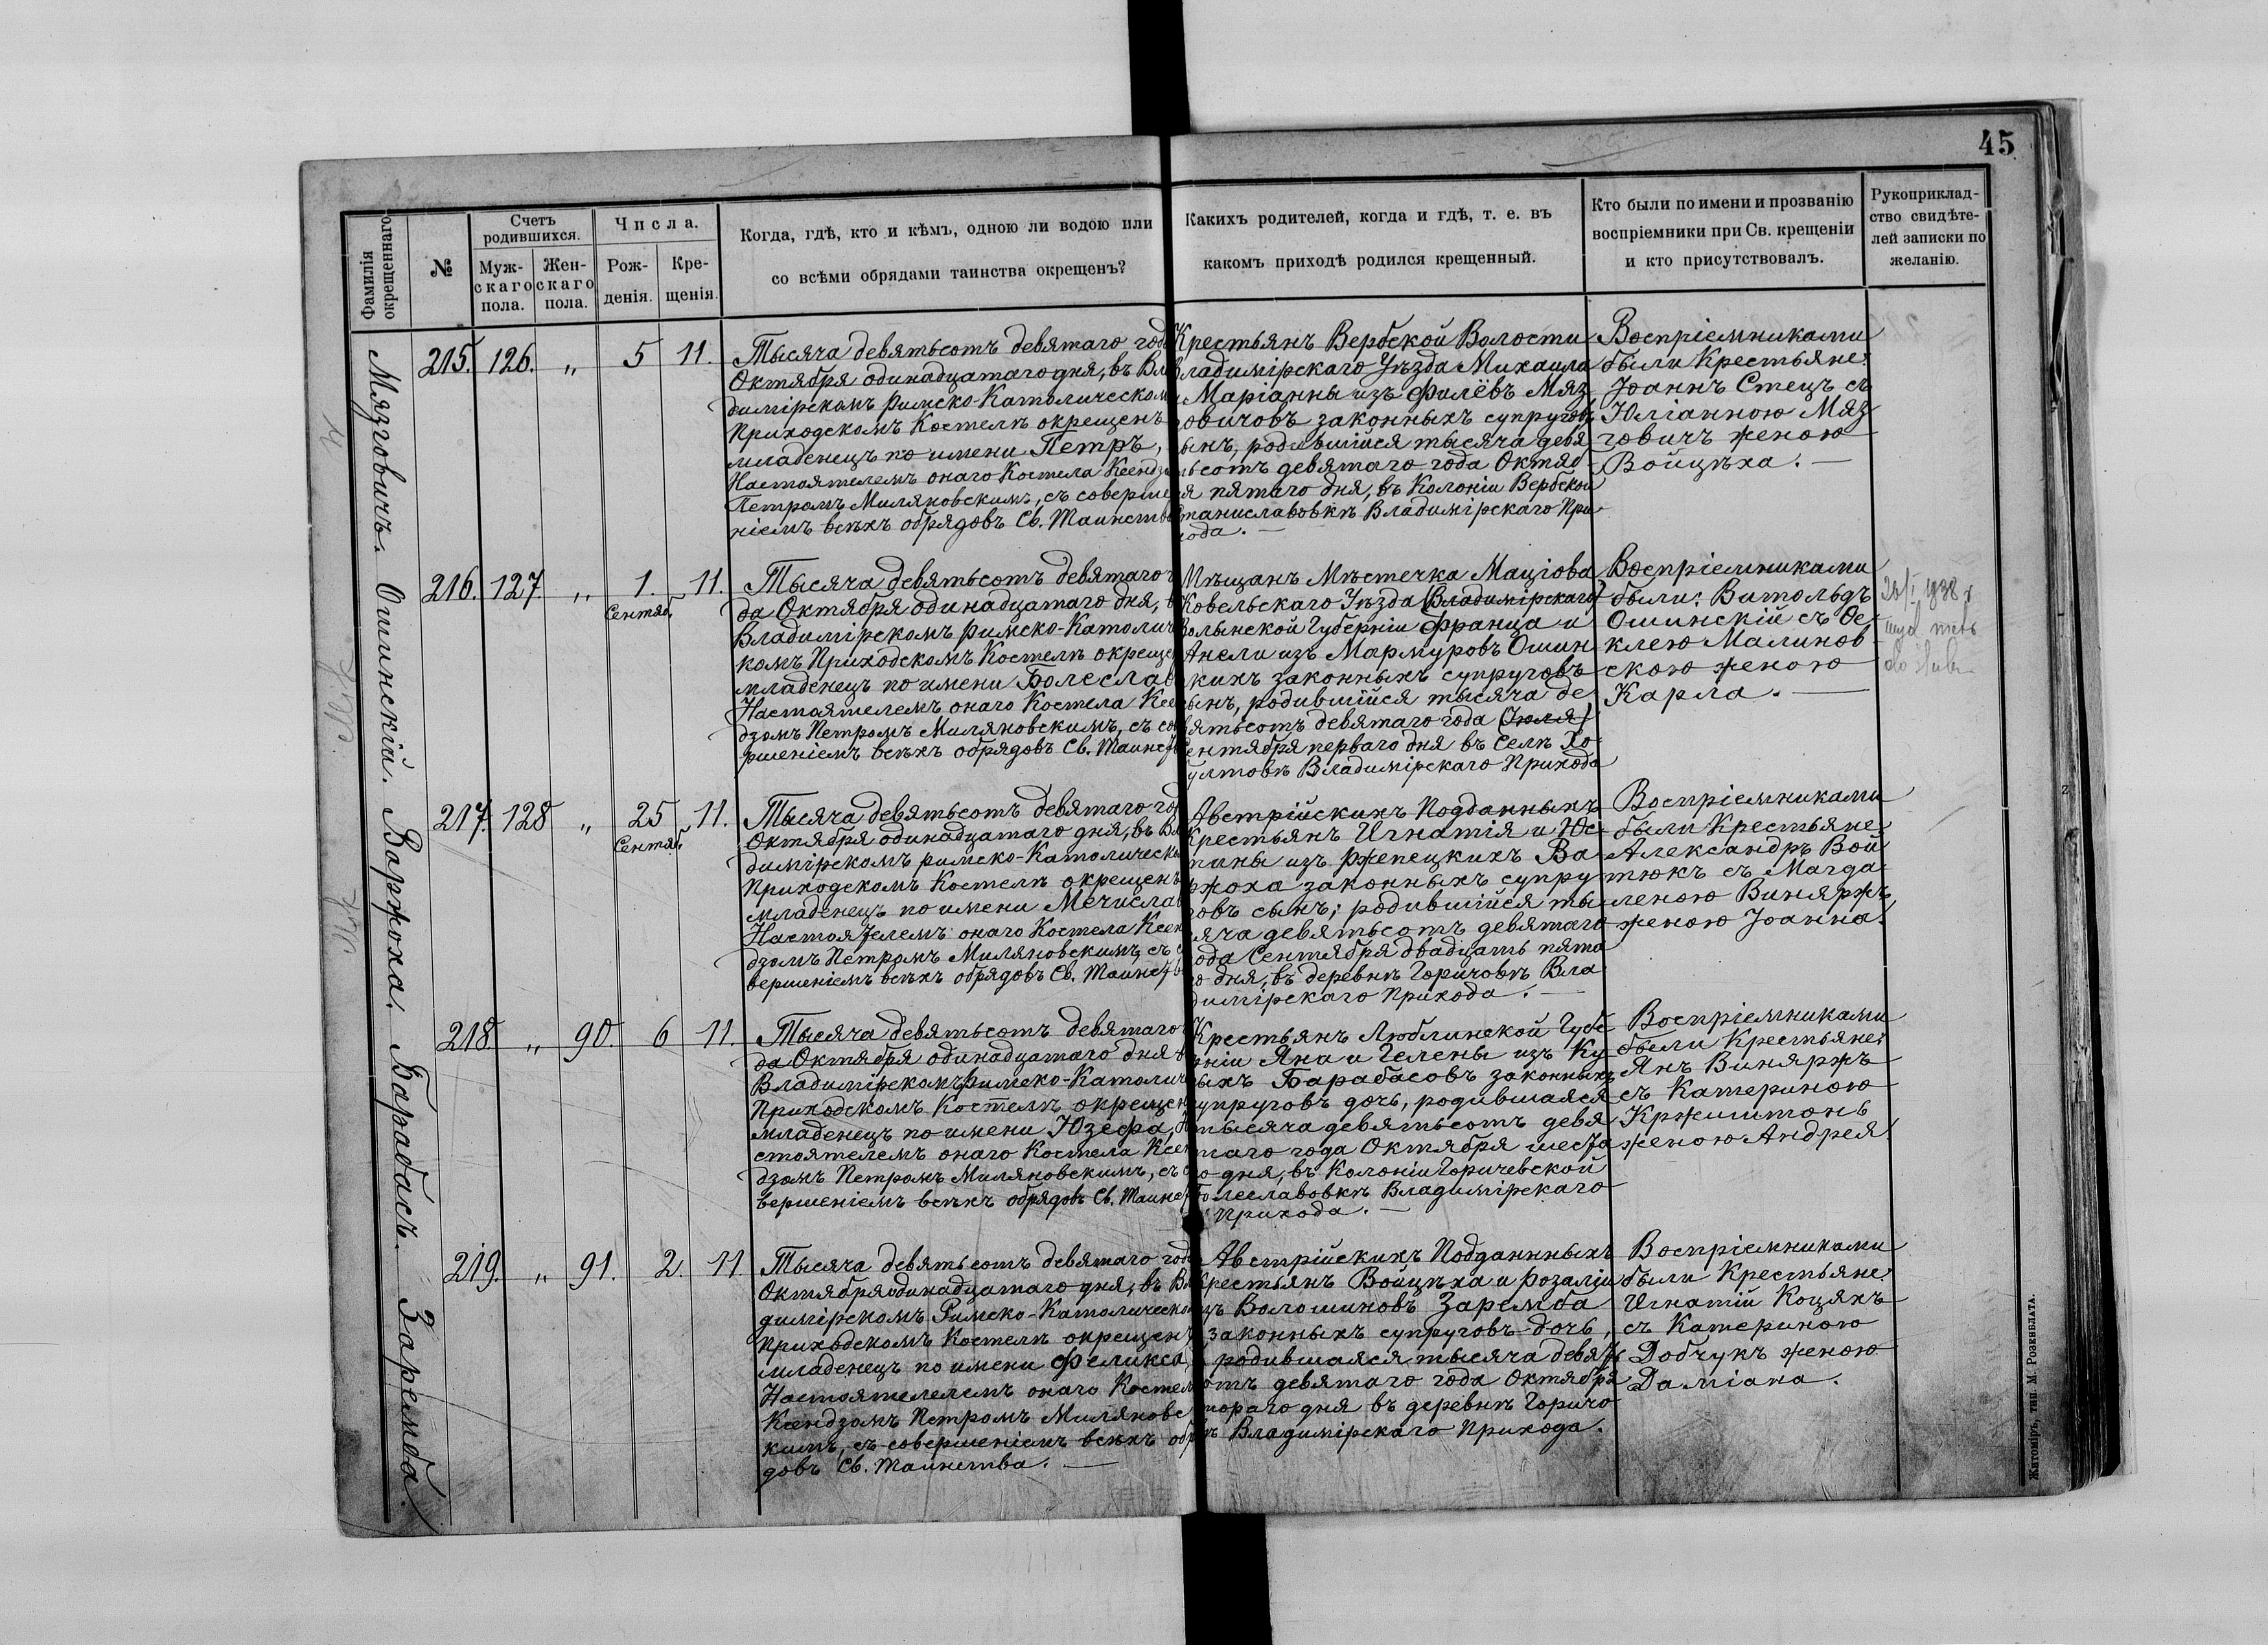 45
Фамилія окрещеннаго.
№
Счетъ родившихся.
Мужскаго пола.
Женскаго пола.
Числа.
Рожденія.
Крещенія.
Когда, гдѣ, кто и кѣмъ, одною ли водою или
со всѣми обрядами таинства окрещенъ?
Какихъ родителей, когда и гдѣ, т. е. въ
какомъ приходѣ родился крещенный.
Кто были по имени и прозванію
воспріемники при Св. крещеніи
и кто присутствовалъ.
Рукоприклад-
ство свидѣте-
лей записки по
желанію.
Мязговичъ.
215. 126. „ 5 11.
Тысяча девятьсотъ девятаго года
Октября одинадцатаго дня, въ Вла
димірскомъ Римско-Католическом
Приходскомъ Костелѣ окрещенъ
младенецъ по имени Петръ,
Настоятелемъ онаго Костела Ксендзо
Петромъ Миляновскимъ, съ соверше
ніемъ всѣхъ обрядовъ Св. Таинства
Крестьянъ Вербской Волости
Владимірскаго Уѣзда Михаила
и Маріанны изъ Филёвъ Мяз
говичовъ законныхъ супруговъ
сынъ, родившійся тысяча девя
тьсотъ девятаго года Октяб
ря пятаго дня, въ Колоніи Вербской
Станиславовкѣ Владимірскаго При
хода. —
Воспріемниками
были Крестьяне:
Іоаннъ Стецъ съ
Юліанною Мяз
говичъ женою
Войцѣха. —
Ошинскій.
216. 127. „ 1. 11.
Сентяб.
Тысяча девятьсотъ девятаго
да Октября одинадцатаго дня, въ
Владимірскомъ Римско-Католич
комъ Приходскомъ Костелѣ окреще
младенецъ по имени Болеслав
Настоятелемъ онаго Костела Ксе
дзомъ Петромъ Миляновскимъ, съ со
ршеніемъ всѣхъ обрядовъ Св. Таинст
Мѣщанъ Мѣстечка Маціова
Ковельскаго Уѣзда (Владимірскаго)
Волынской Губерніи Франца и
Анели изъ Мармуровъ Ошин
скихъ законныхъ супруговъ
сынъ, родившійся тысяча де
вятьсотъ девятаго года (Іюля)
Сентября перваго дня въ Селѣ Хо
бултовѣ Владимірскаго Прихода
Воспріемниками
были: Витольдъ
Ошинскій съ Ѳе-
клею Малинов
скою женою
Карла. —
1938
Варжоха.
217. 128 „ 25 11.
Сентяб.
Тысяча девятьсотъ девятаго год
Октября одинадцатаго дня, въ Вла
димірскомъ Римско-Католическо
Приходскомъ Костелѣ окрещенъ
младенецъ по имени Мечислав
Настоятелемъ онаго Костела Ксен
дзомъ Петромъ Миляновскимъ, съ со
вершеніемъ всѣхъ обрядовъ Св. Таинств
Австрійскихъ Подданныхъ
Крестьянъ Игнатія и Юс-
тины изъ Ржепецкихъ Ва-
ржоха законныхъ супру
говъ сынъ; родившійся ты
сяча девятьсотъ девятаго
года Сентября двадцать пята
го дня, въ деревнѣ Горичовѣ Вла
димірскаго Прихода. —
Воспріемниками
были Крестьяне:
Александръ Вой
тюкъ съ Магда
леною Виняржъ
женою Іоанна.
Барабасъ.
218. „ 90. 6 11.
Тысяча девятьсотъ девятаго
да Октября одинадцатаго дня въ
Владимірскомъ Римско-Католич
Приходскомъ Костелѣ окрещен
младенецъ по имени Юзефа, На
стоятелемъ онаго Костела Ксен
дзомъ Петромъ Миляновскимъ, съ со
вершеніемъ всѣхъ обрядовъ Св. Таинст
Крестьянъ Люблинской Губе
рніи Яна и Гелены изъ Ку
ыхъ Барабасовъ законныхъ
супруговъ дочь, родившаяся
тысяча девятьсотъ девя
таго года Октября шеста
го дня, въ Колоніи Горичевской
Болеславовкѣ Владимірскаго
Прихода. —
Воспріемниками
были Крестьяне:
Янъ Виняржъ
съ Катериною
Кржиштонь
женою Андрея.
Заремба.
219. „ 91. 2. 11
Тысяча девятьсотъ девятаго года
Октября одинадцатаго дня, въ Вла
димірскомъ Римско-Католическом
Приходскомъ Костелѣ окрещенъ
младенецъ по имени Феликса,
Настоятелелемъ онаго Костел
Ксендзомъ Петромъ Миляновс
кимъ, съ совершеніемъ всѣхъ обр
довъ Св. Таинства. —
Австрійскихъ Подданнныхъ
Крестьянъ Войцѣха и Розаліи
изъ Волошиновъ Заремба
законныхъ супруговъ дочь,
родившаяся тысяча девять
сотъ девятаго года Октября
втораго дня въ деревнѣ Горичо
вѣ Владимірскаго Прихода.
Воспріемниками
были Крестьяне:
Игнатій Коцякъ
съ Катериною
Добчукъ женою
Даміана.
Житоміръ, тип. М. Розенблата.